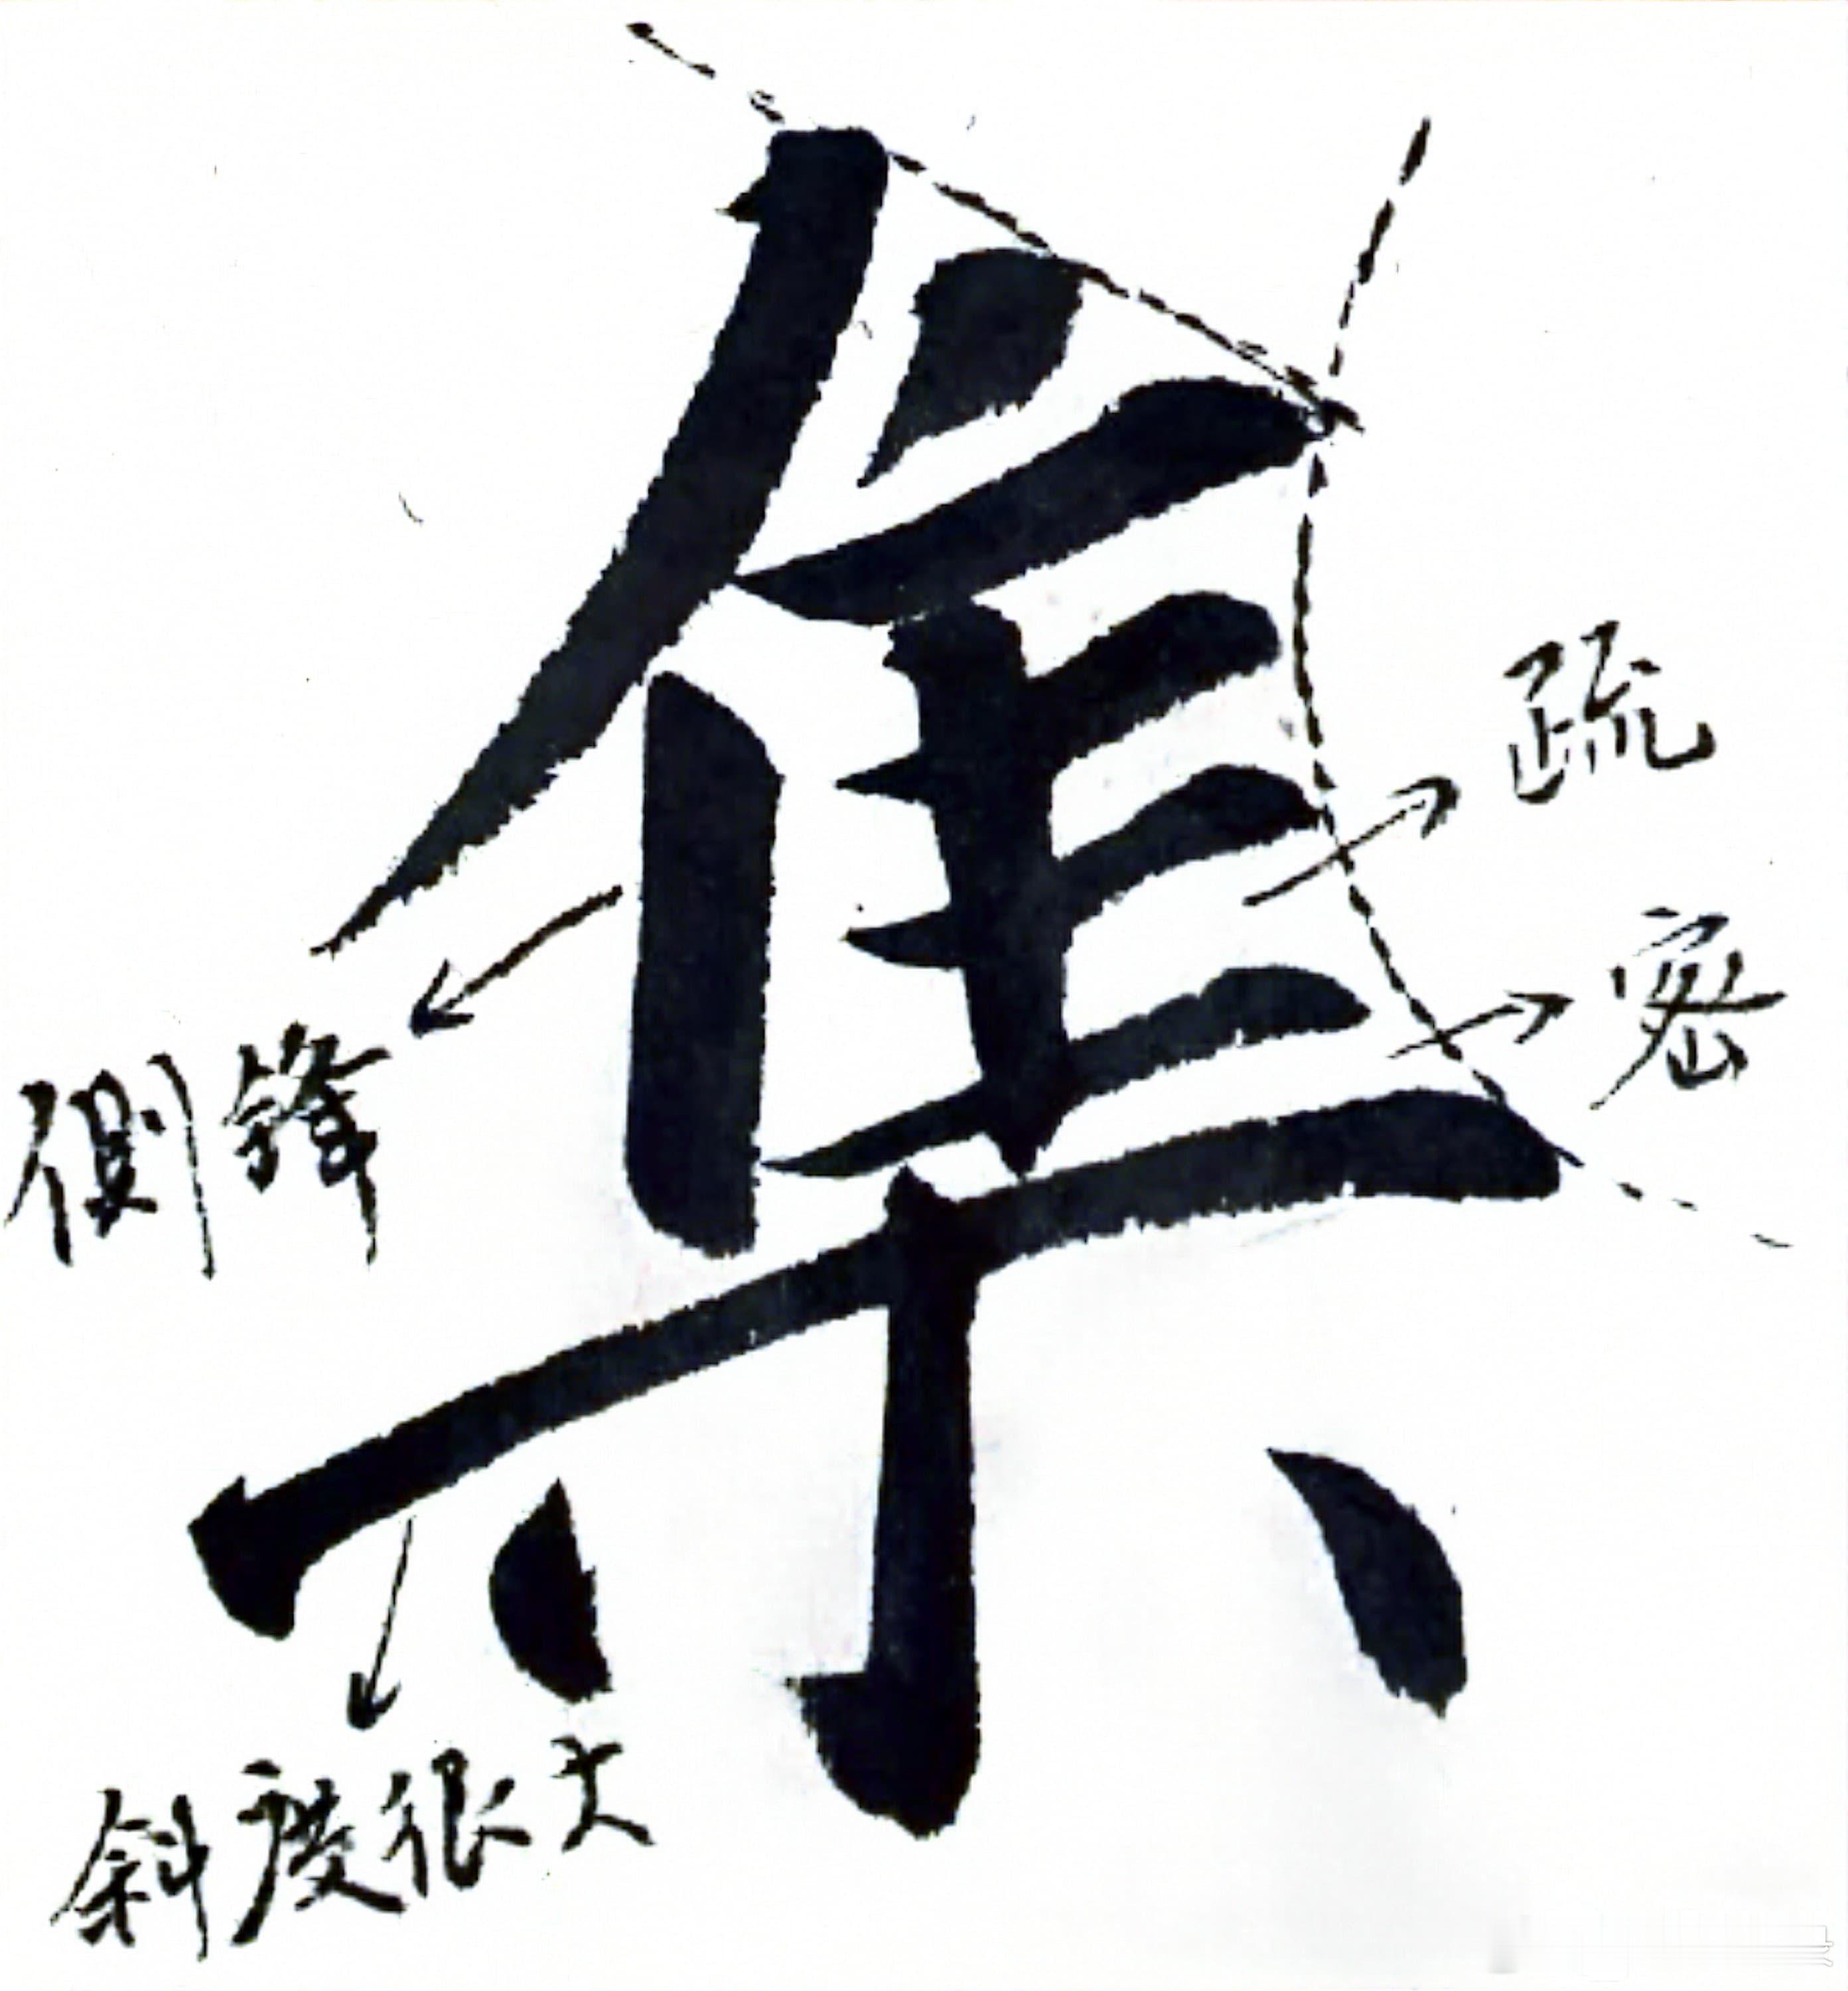 集
疏
密
側鋒
斜度很大